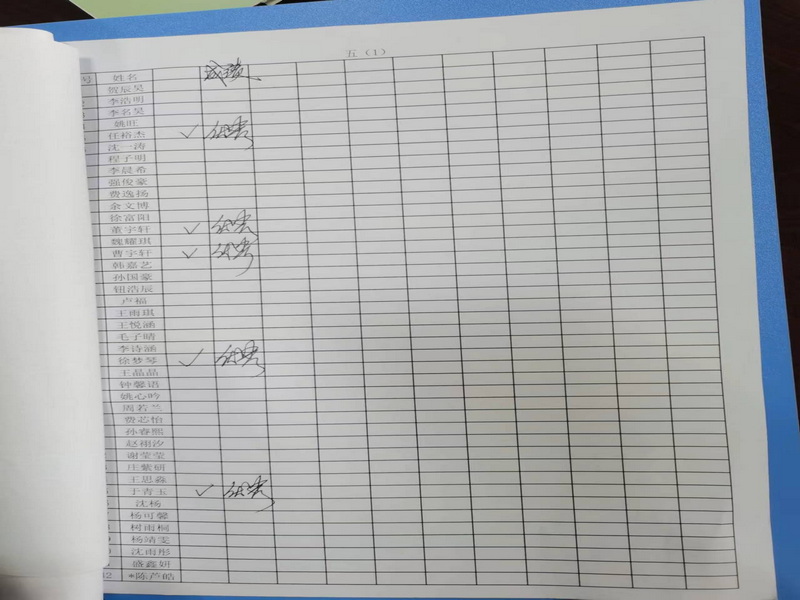 五（1）
号 姓名 成绩
贺辰昊
李浩明
李名昊
姚旺
任裕杰 ✓ 优秀
沈一涛
程子明
李晨希
强俊豪
费逸扬
余文博
徐富阳
董宇轩 ✓ 优秀
魏耀琪
曹宇轩 ✓ 优秀
韩嘉艺
孙国豪
钮浩辰
卢福
王雨琪
王悦涵
毛子晴
李诗涵
徐梦琴 ✓ 优秀
王晶晶
钟馨语
姚心吟
周若兰
费芯怡
孙春熙
赵栩汐
谢莹莹
庄紫妍
王思淼
于青玉 ✓ 优秀
沈杨
杨可馨
柯雨桐
杨靖雯
沈雨彤
盛鑫妍
*陈芦皓